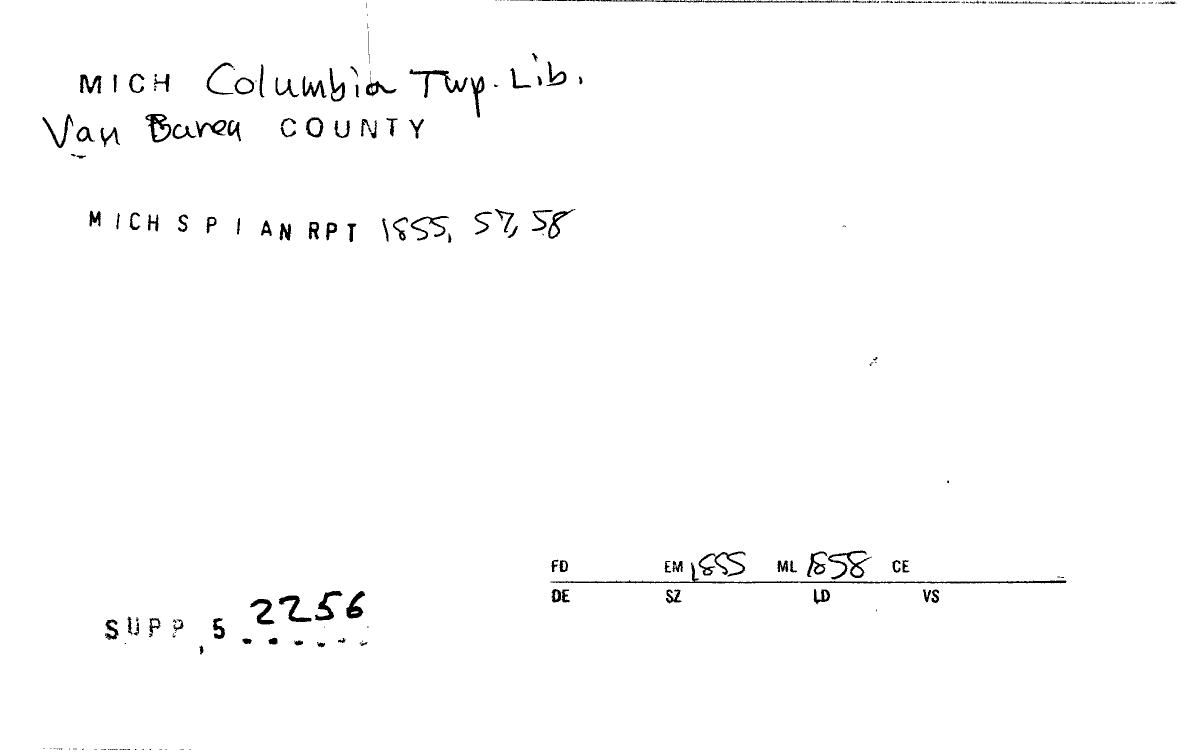 MICH Columbia Twp. Lib.
Van Buren COUNTY
MICH S P I AN RPT 1855, 57, 58
FD EM 1855 ML 1858 CE
DE SZ LD VS
SUPP, 5 2256